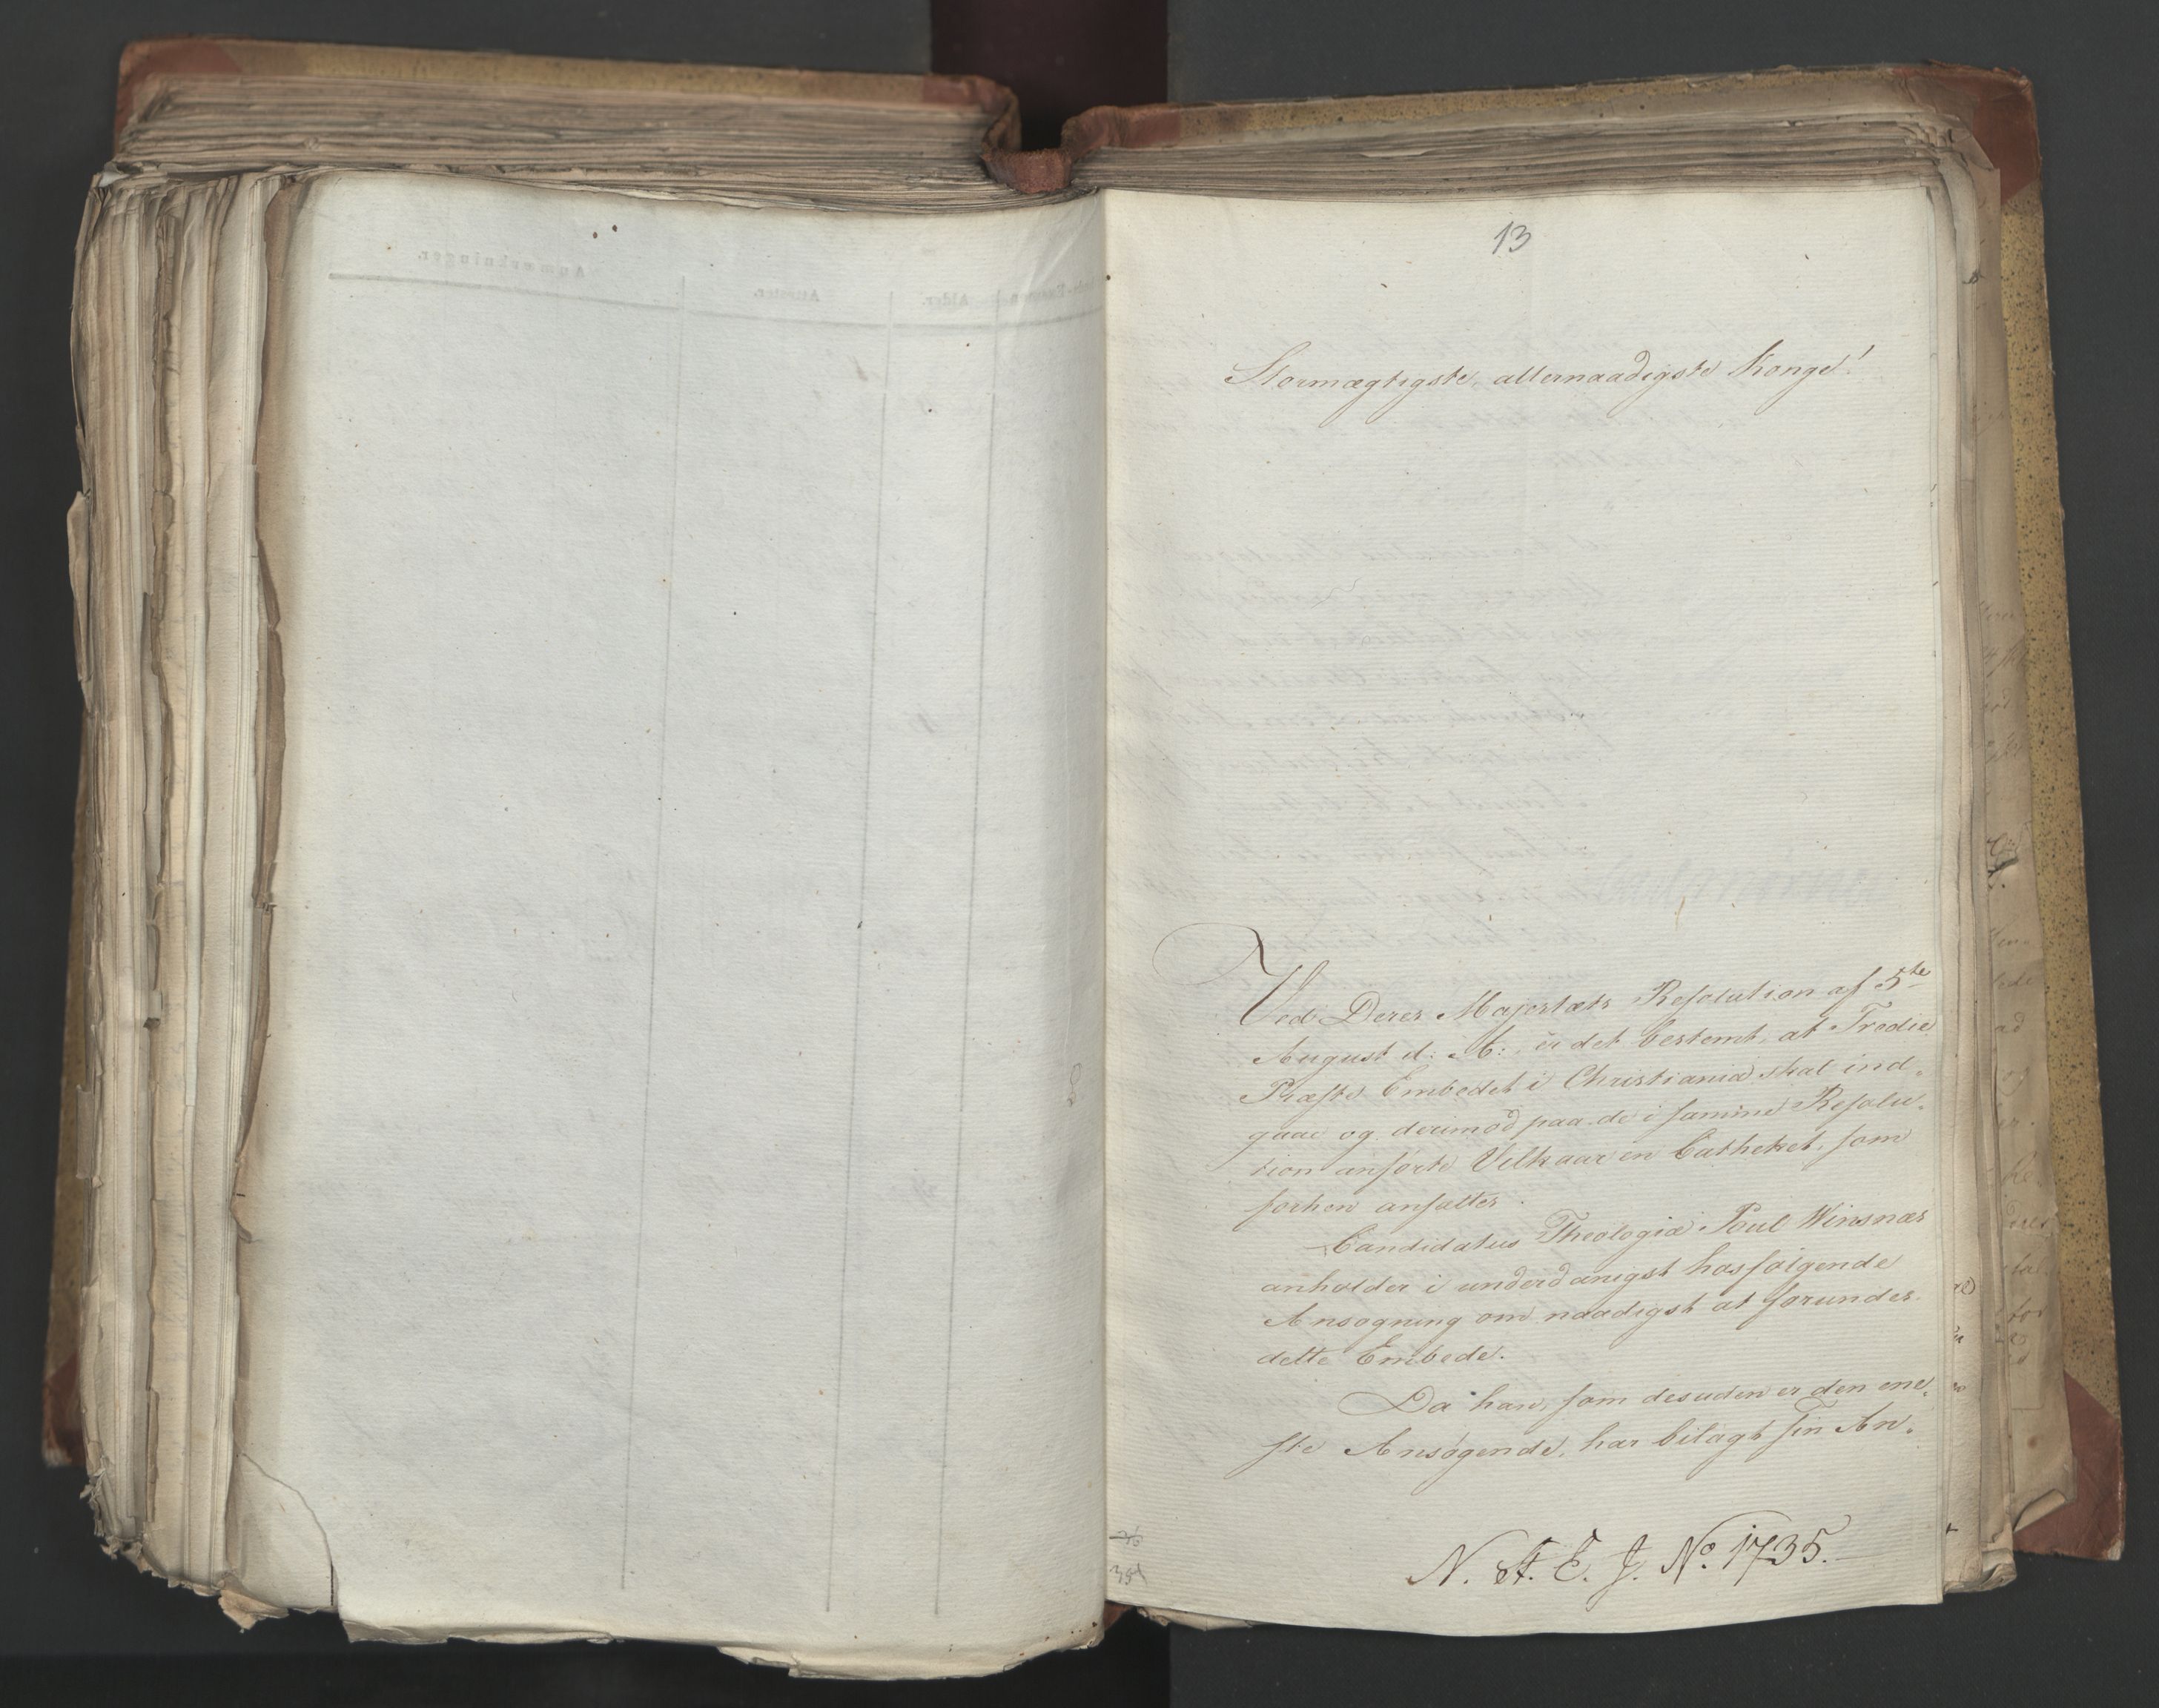 13
Stormægtigste, allernaadigste Konge!
Ved Deres Majestæts Resolution af 5te
August d: A:, er det bestemt, at Tredie
Præste Embedet i Christiania skal ind-
gaae og derimod paa de i samme Resolu-
tion anførte Vilkaar en Catheket, som
forhen ansættes.
Candidatus Theologiæ Poul Winsnæs
anholder i underdanigst hosfølgende
Ansøgning om naadigst at forundes
dette Embede.
Da han, som desuden er den ene-
ste Ansøgende, har bilagt sin An-
N. A. E. J. No. 1735.